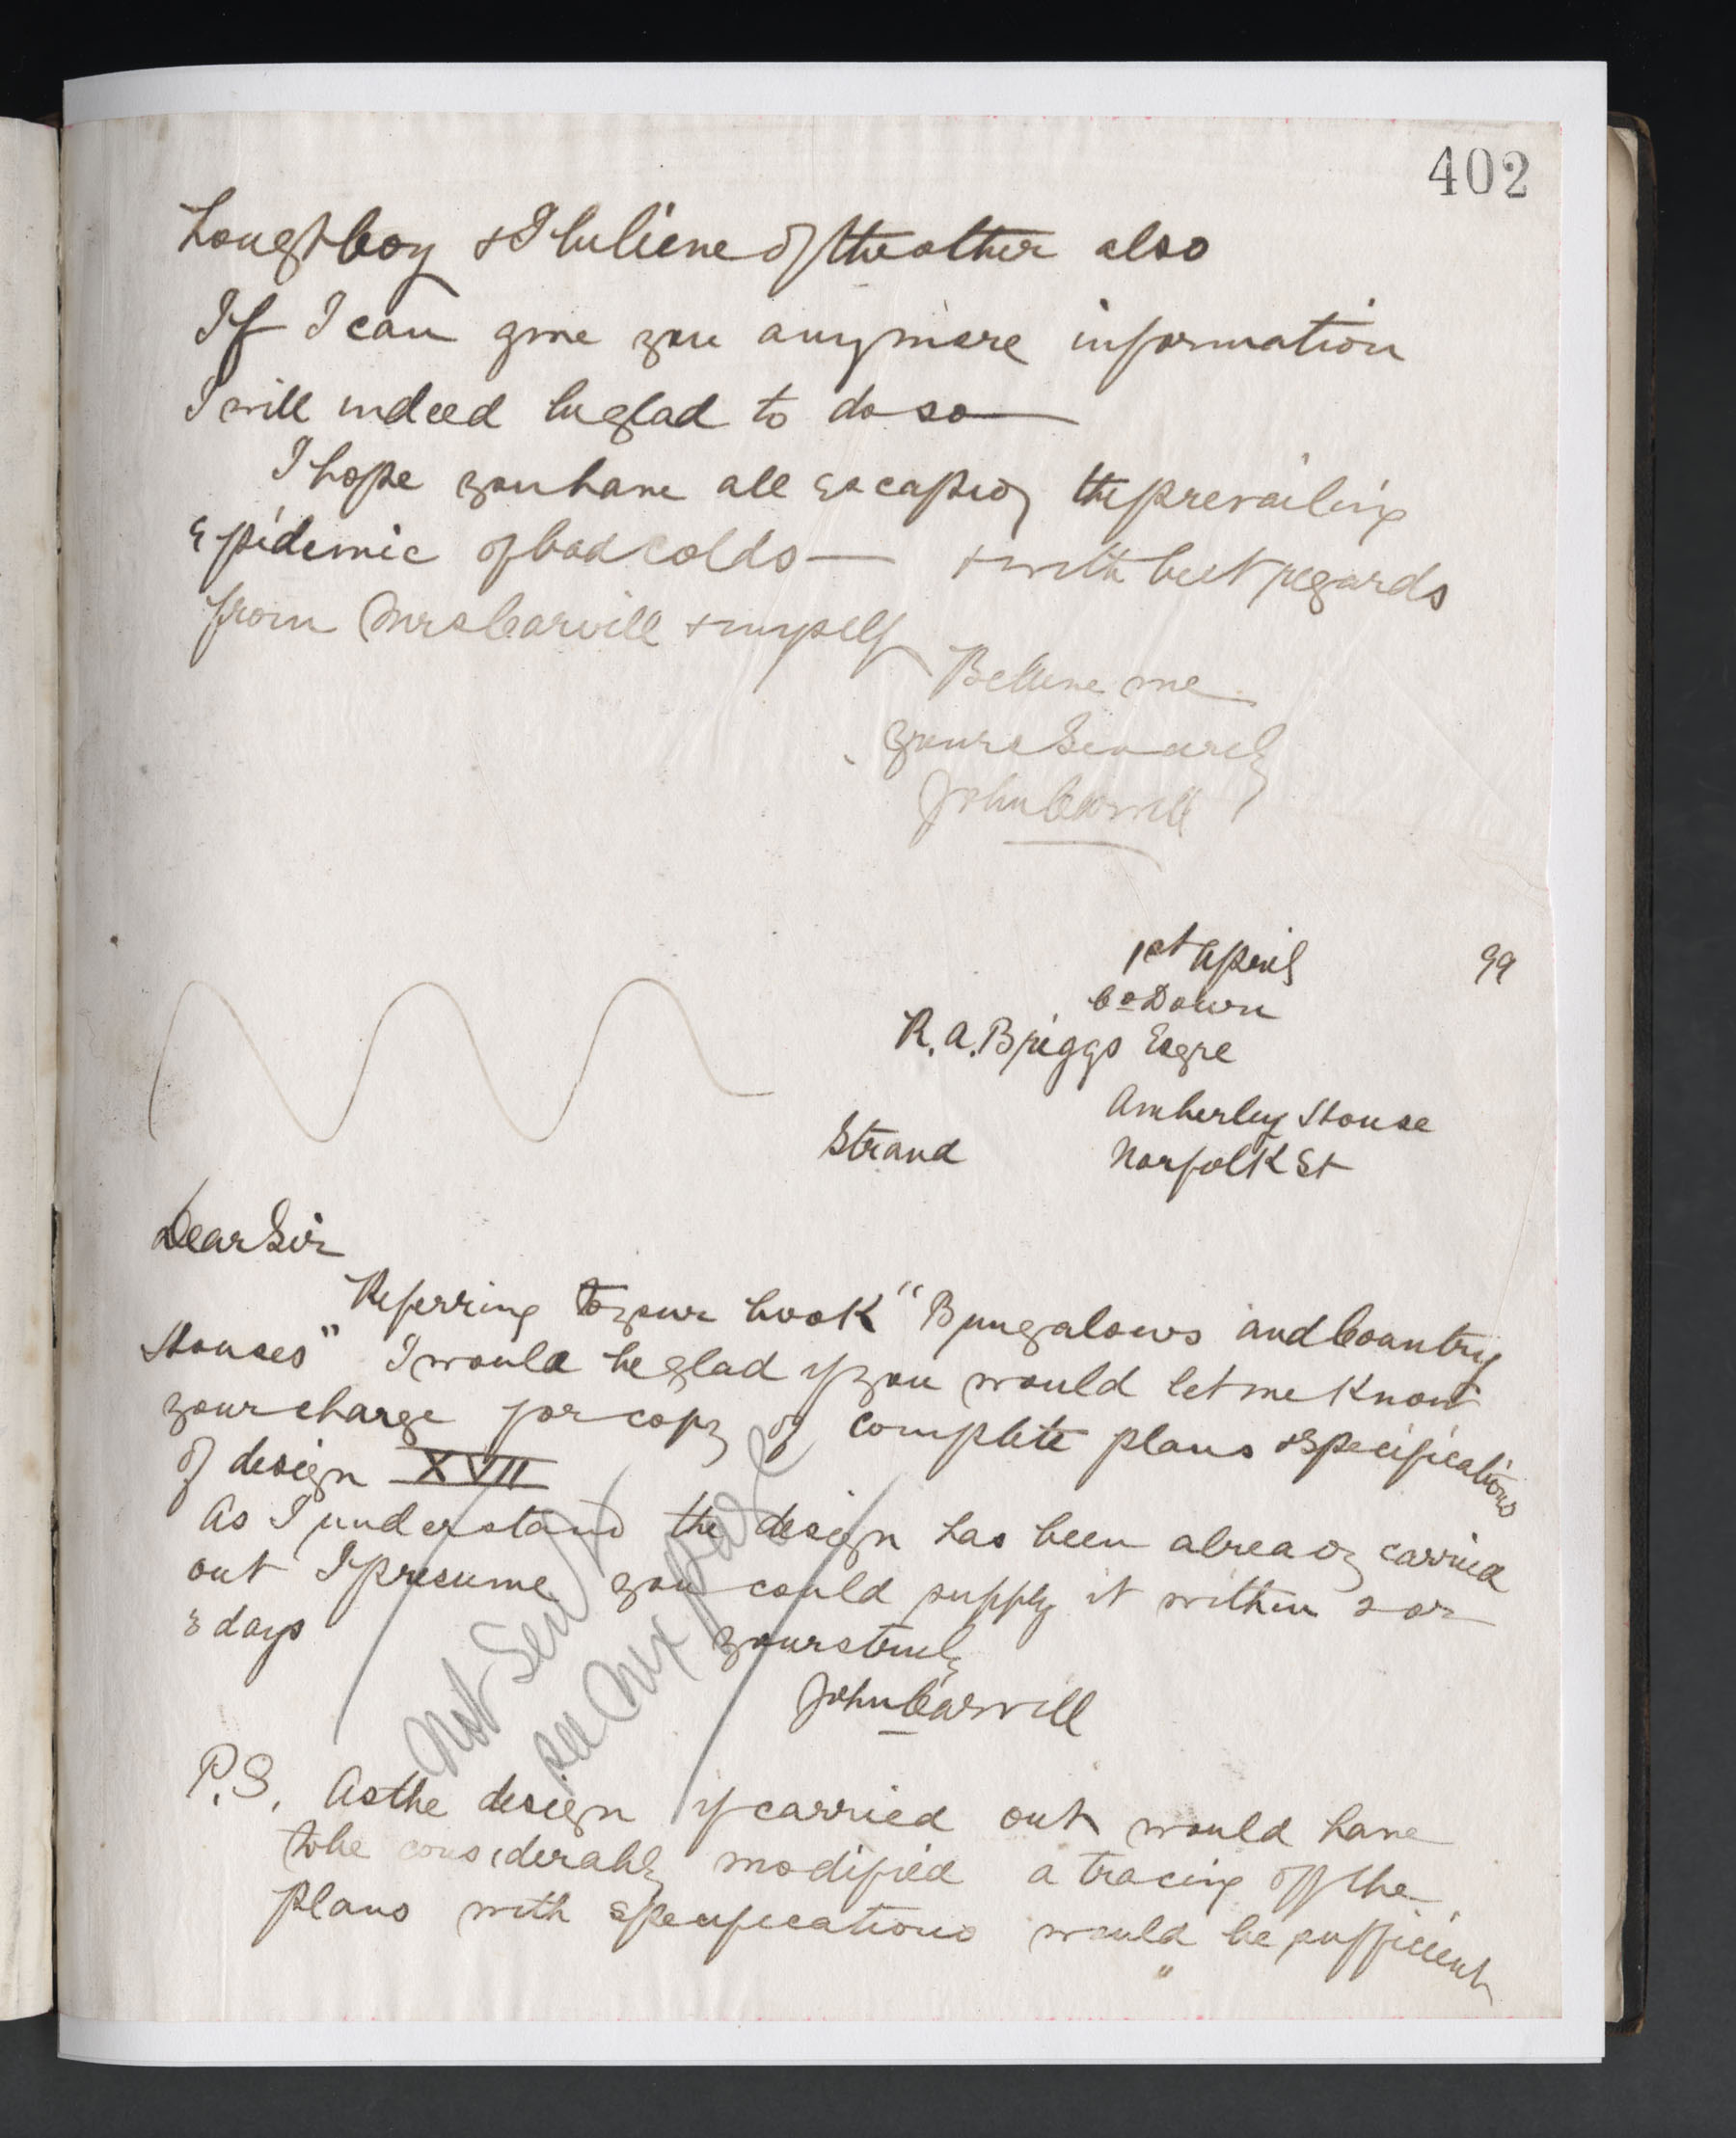 402
Loughboy & I believe of the other also
If I can give you any more information
I will indeed be glad to do so —
I hope you have all escaped the prevailing
Epidemic of bad colds — & with best regards
from Mrs Carvill & myself
Believe me
yours Sincerely
John Carvill
1st April 99
Co Down
R. A. Briggs Esqre
Amberley House
Strand Norfolk St
Dear Sir
Referring to your book "Bungalows and Country
Houses" I would be glad if you would let me know
your charge for copy of complete plans & specifications
of design XVII
As I understand the design has been already carried
out I presume you could supply it within 2 or
3 days
yours truly
John Carvill
Not Sent
see next page
P.S. As the design if carried out would have
to be considerably modified a tracing of the
plans with specifications would be sufficient